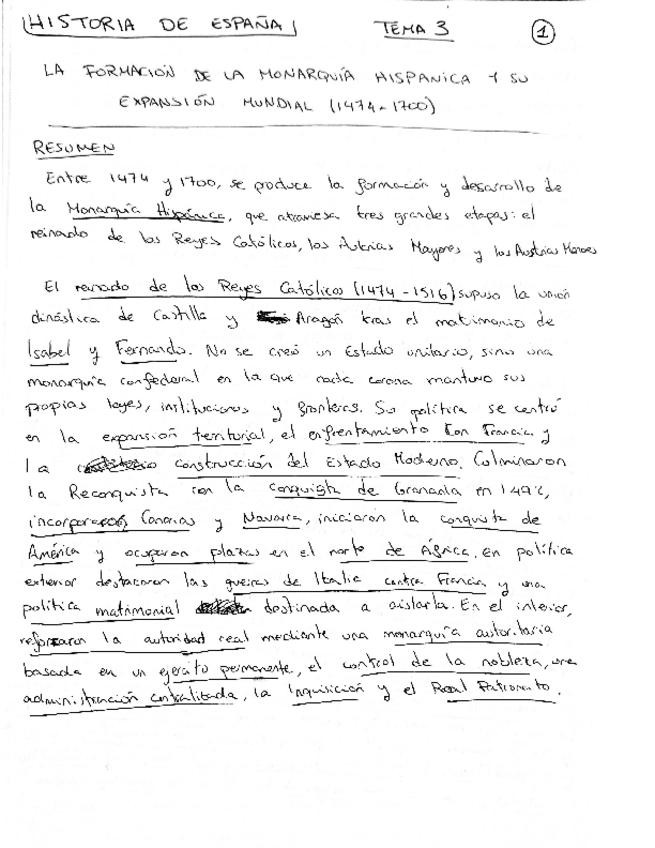 HISTORIA DE ESPAÑA TEMA 3 1
LA FORMACIÓN DE LA MONARQUÍA HISPANICA Y SU
EXPANSIÓN MUNDIAL (1474-1700)
RESUMEN
Entre 1474 y 1700, se produce la formación y desarrollo de
la Monarquía Hispánica, que atraviesa tres grandes etapas: el
reinado de los Reyes Católicos, los Austrias Mayores y los Austrias Menores
El reinado de los Reyes Católicos (1474-1516) supuso la unión
dinástica de Castilla y Aragón tras el matrimonio de
Isabel y Fernando. No se creó un Estado unitario, sino una
monarquía confederal en la que cada corona mantuvo sus
propias leyes, instituciones y fronteras. Su política se centró
en la expansión territorial, el enfrentamiento con Francia y
la construcción del Estado Moderno. Culminaron
la Reconquista con la conquista de Granada en 1492,
incorporaron Canarias y Navarra, iniciaron la conquista de
América y ocuparon plazas en el norte de África. En política
exterior destacaron las guerras de Italia contra Francia y una
política matrimonial destinada a aislarla. En el interior,
reforzaron la autoridad real mediante una monarquía autoritaria
basada en un ejercito permanente, el control de la nobleza, una
administración centralizada, la Inquisición y el Real Patronato.